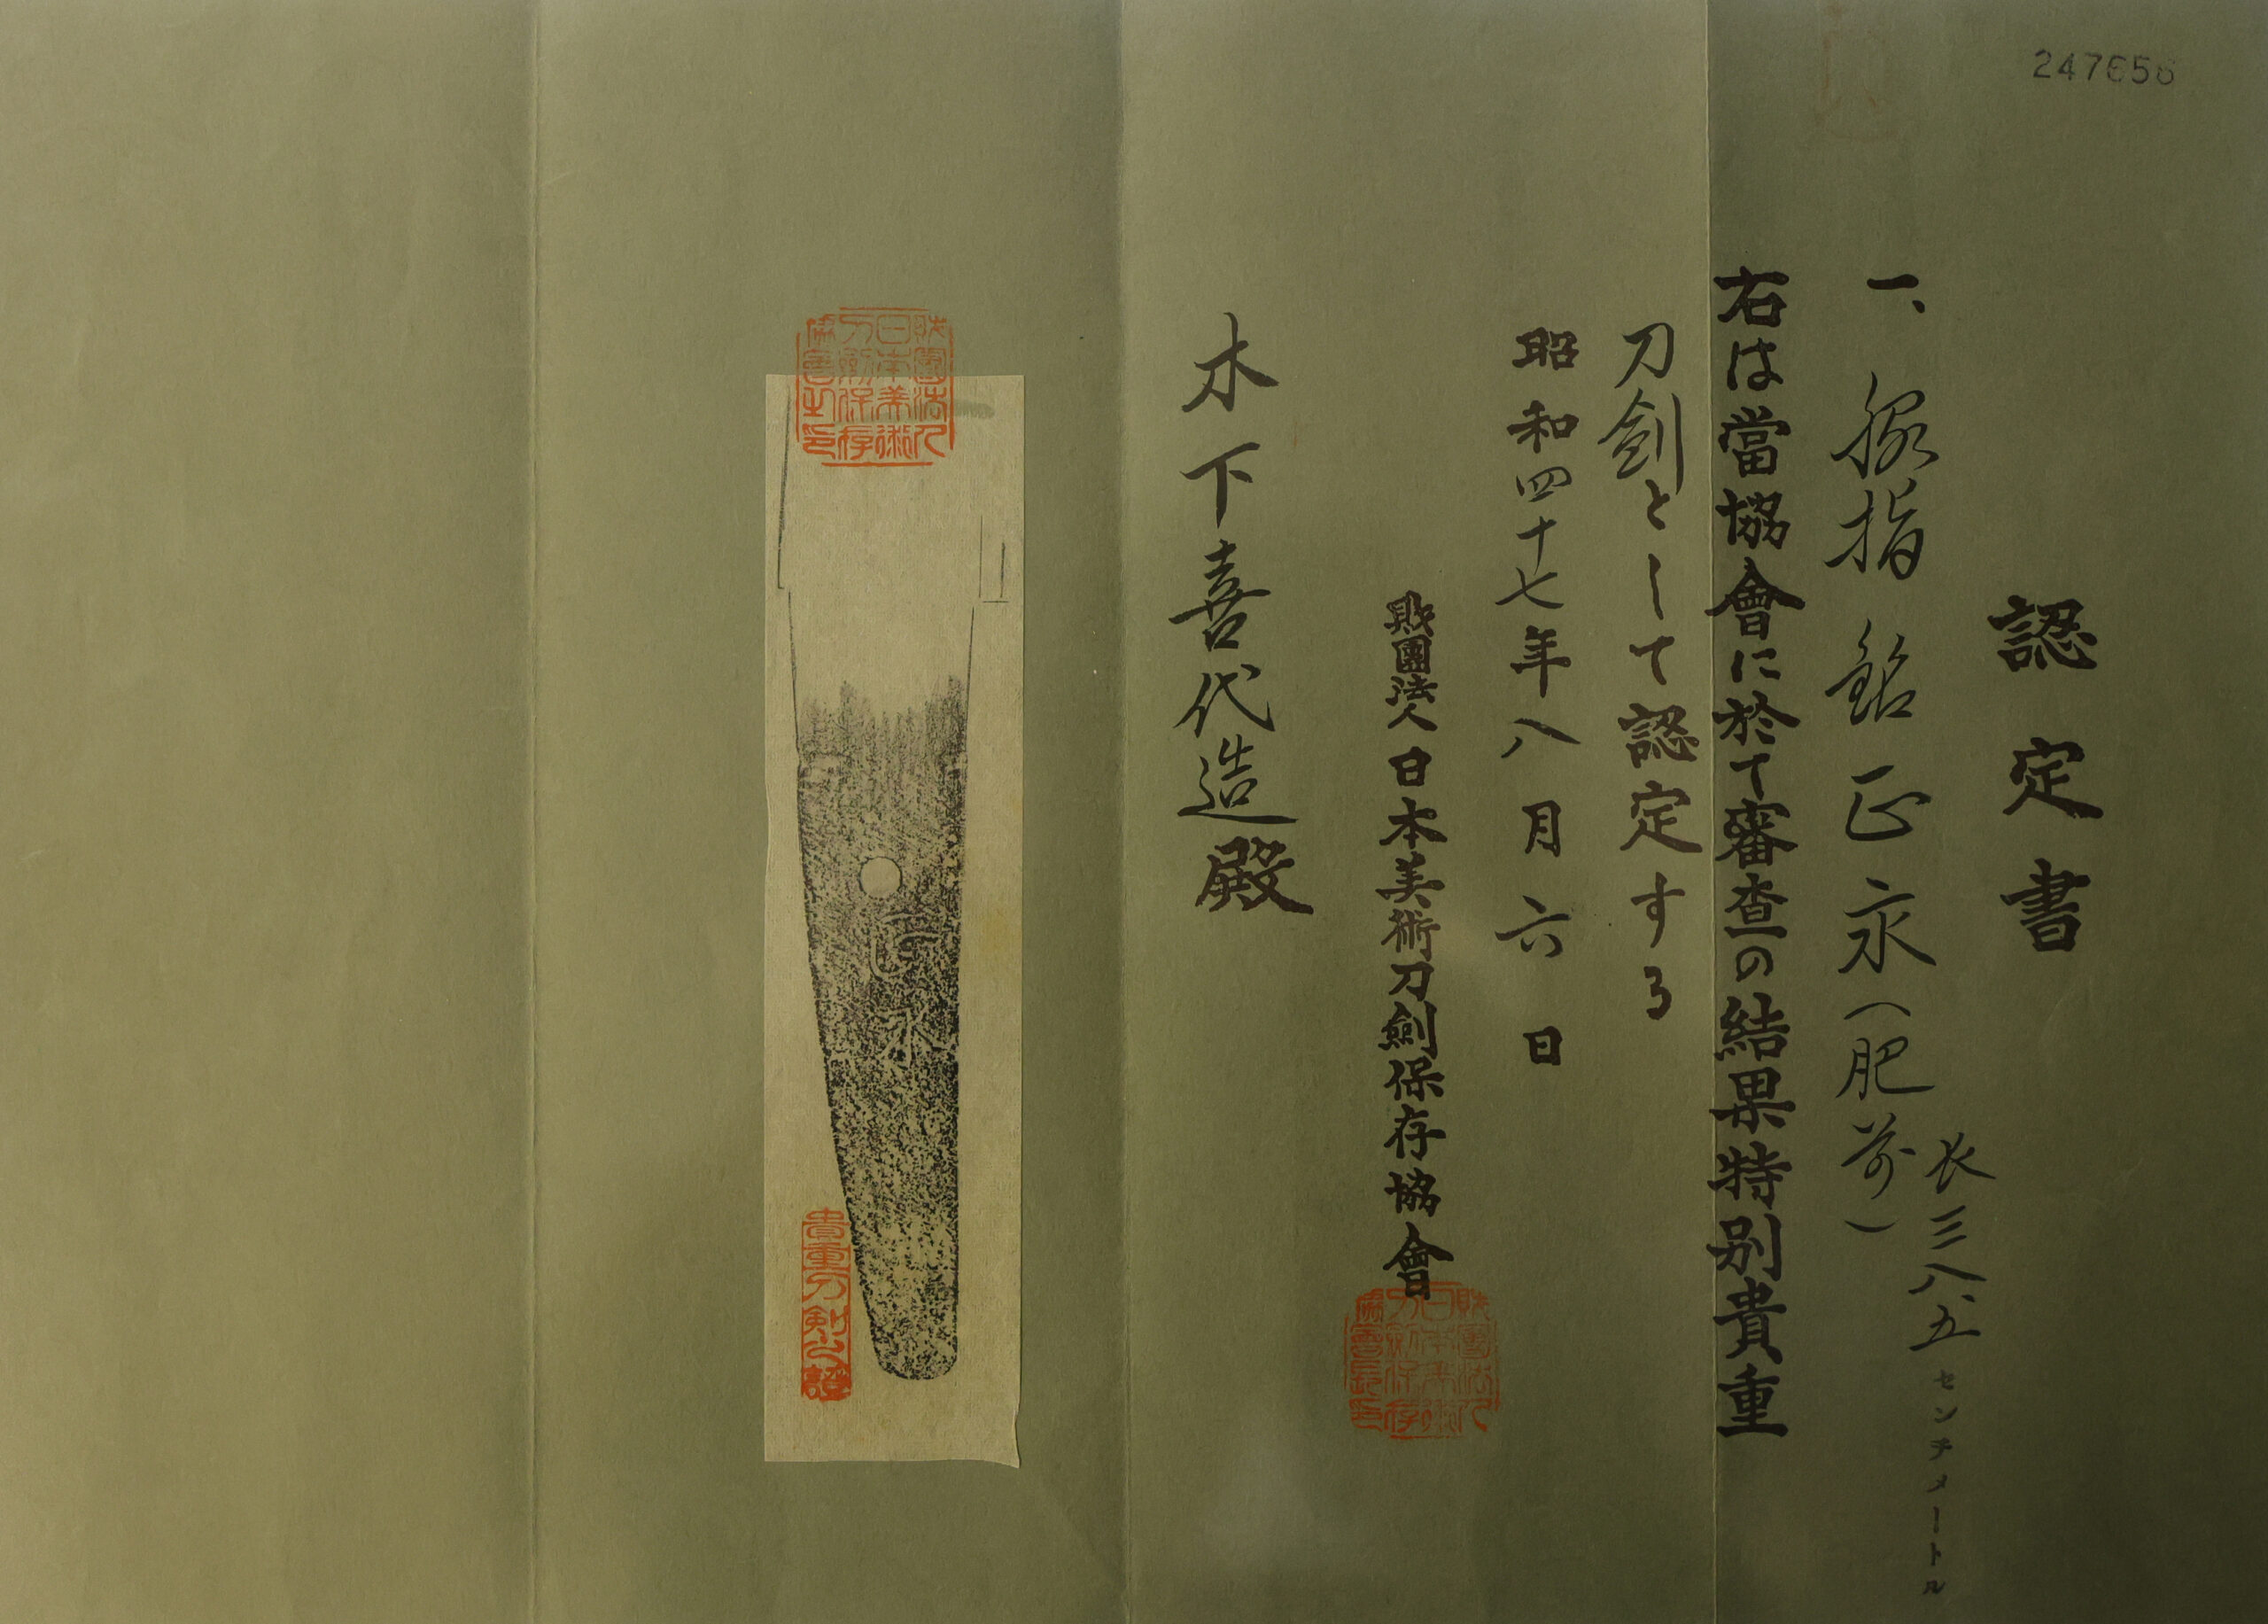 認定書
一、脇指 銘 正永(肥前)
長三八、五センチメートル
右は當協會に於て審査の結果特別貴重
刀劍として認定する
昭和四十七年八月六日
財團法人日本美術刀劍保存協會
木下喜代造殿
正永
貴重刀剣之證